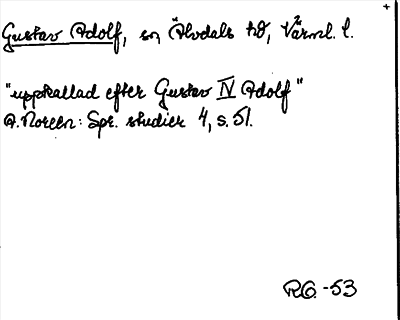 Gustav Adolf, sn, Älvdals hd, Värml. l.
"uppkallad efter Gustav IV Adolf"
A. Noreen: Spr. studier 4, s. 51.
RG. -53